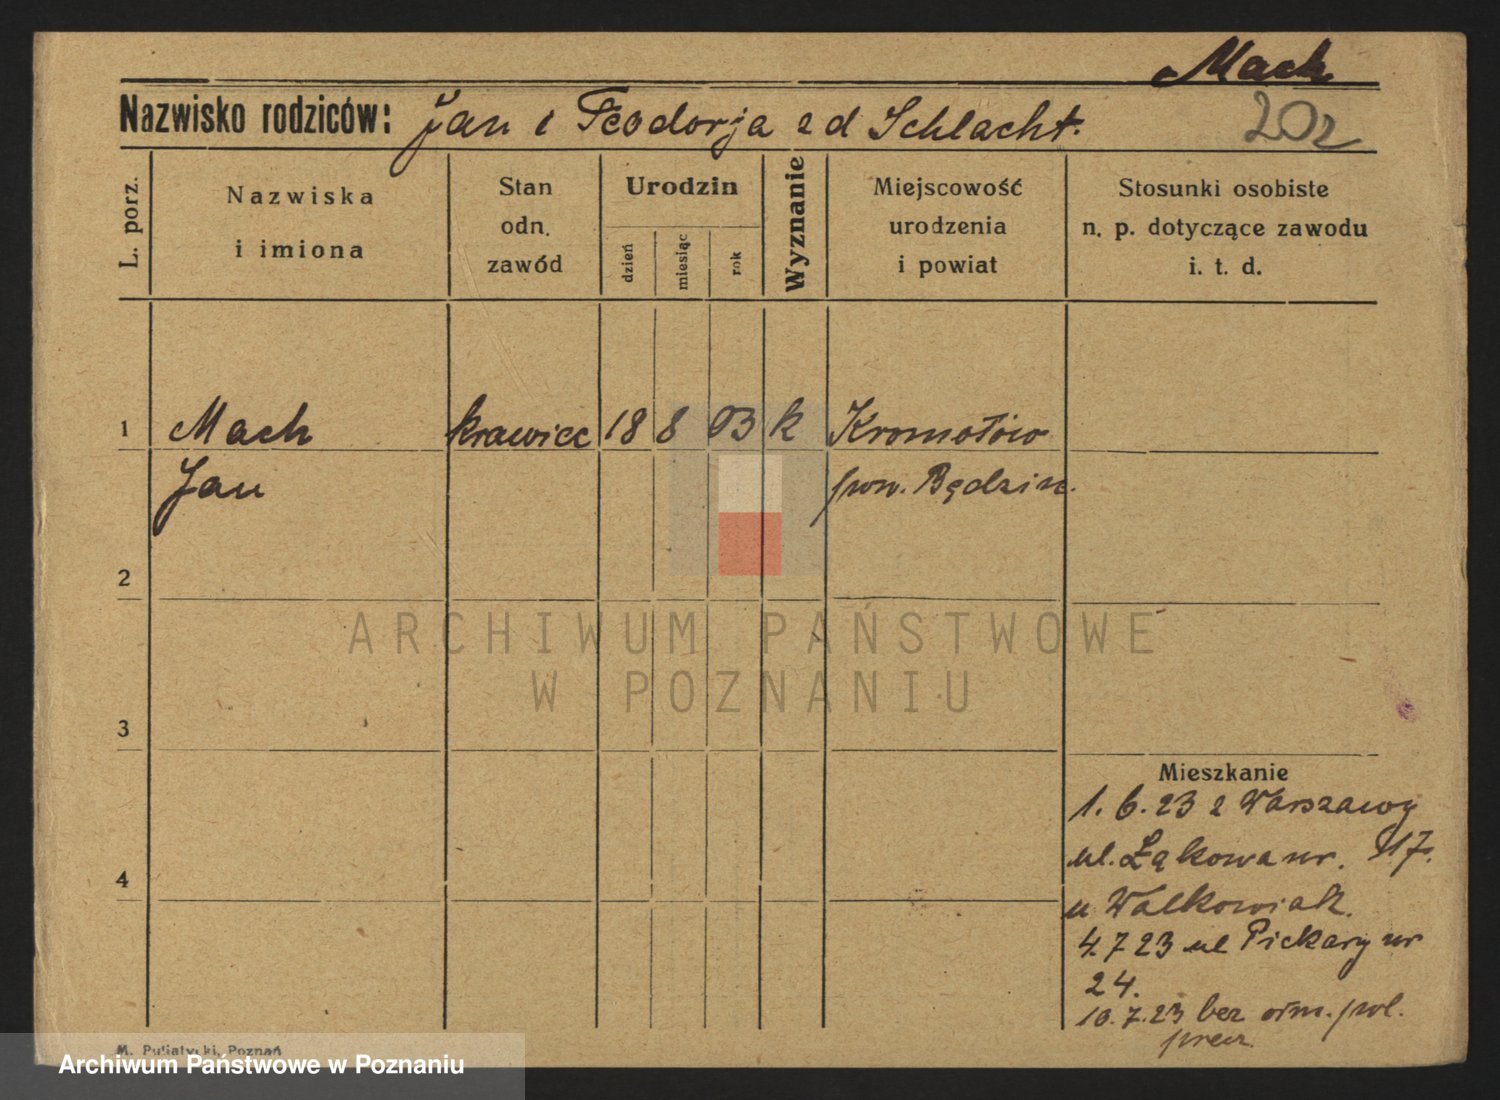 Mach
Nazwisko rodziców: Jan i Feodorja z d Schlacht.
202
L. porz.
Nazwiska
i imiona
Stan
odn.
zawód
Urodzin
dzień
miesiąc
rok
Wyznanie
Miejscowość
urodzenia
i powiat
Stosunki osobiste
n. p. dotyczące zawodu
i. t. d.
1 Mach krawiec 18 8 03 k Kromołów
Jan pow. Będzin.
2
ARCHIWUM PAŃSTWOWE
W POZNANIU
3
Mieszkanie
1. 6. 23 z Warszawy
ul. Łąkowa nr. 17.
4
u Walkowiak.
4. 7 23 ul Piekary nr
24.
10. 7. 23 bez pol.
M. Putiatycki, Poznań
Archiwum Państwowe w Poznaniu